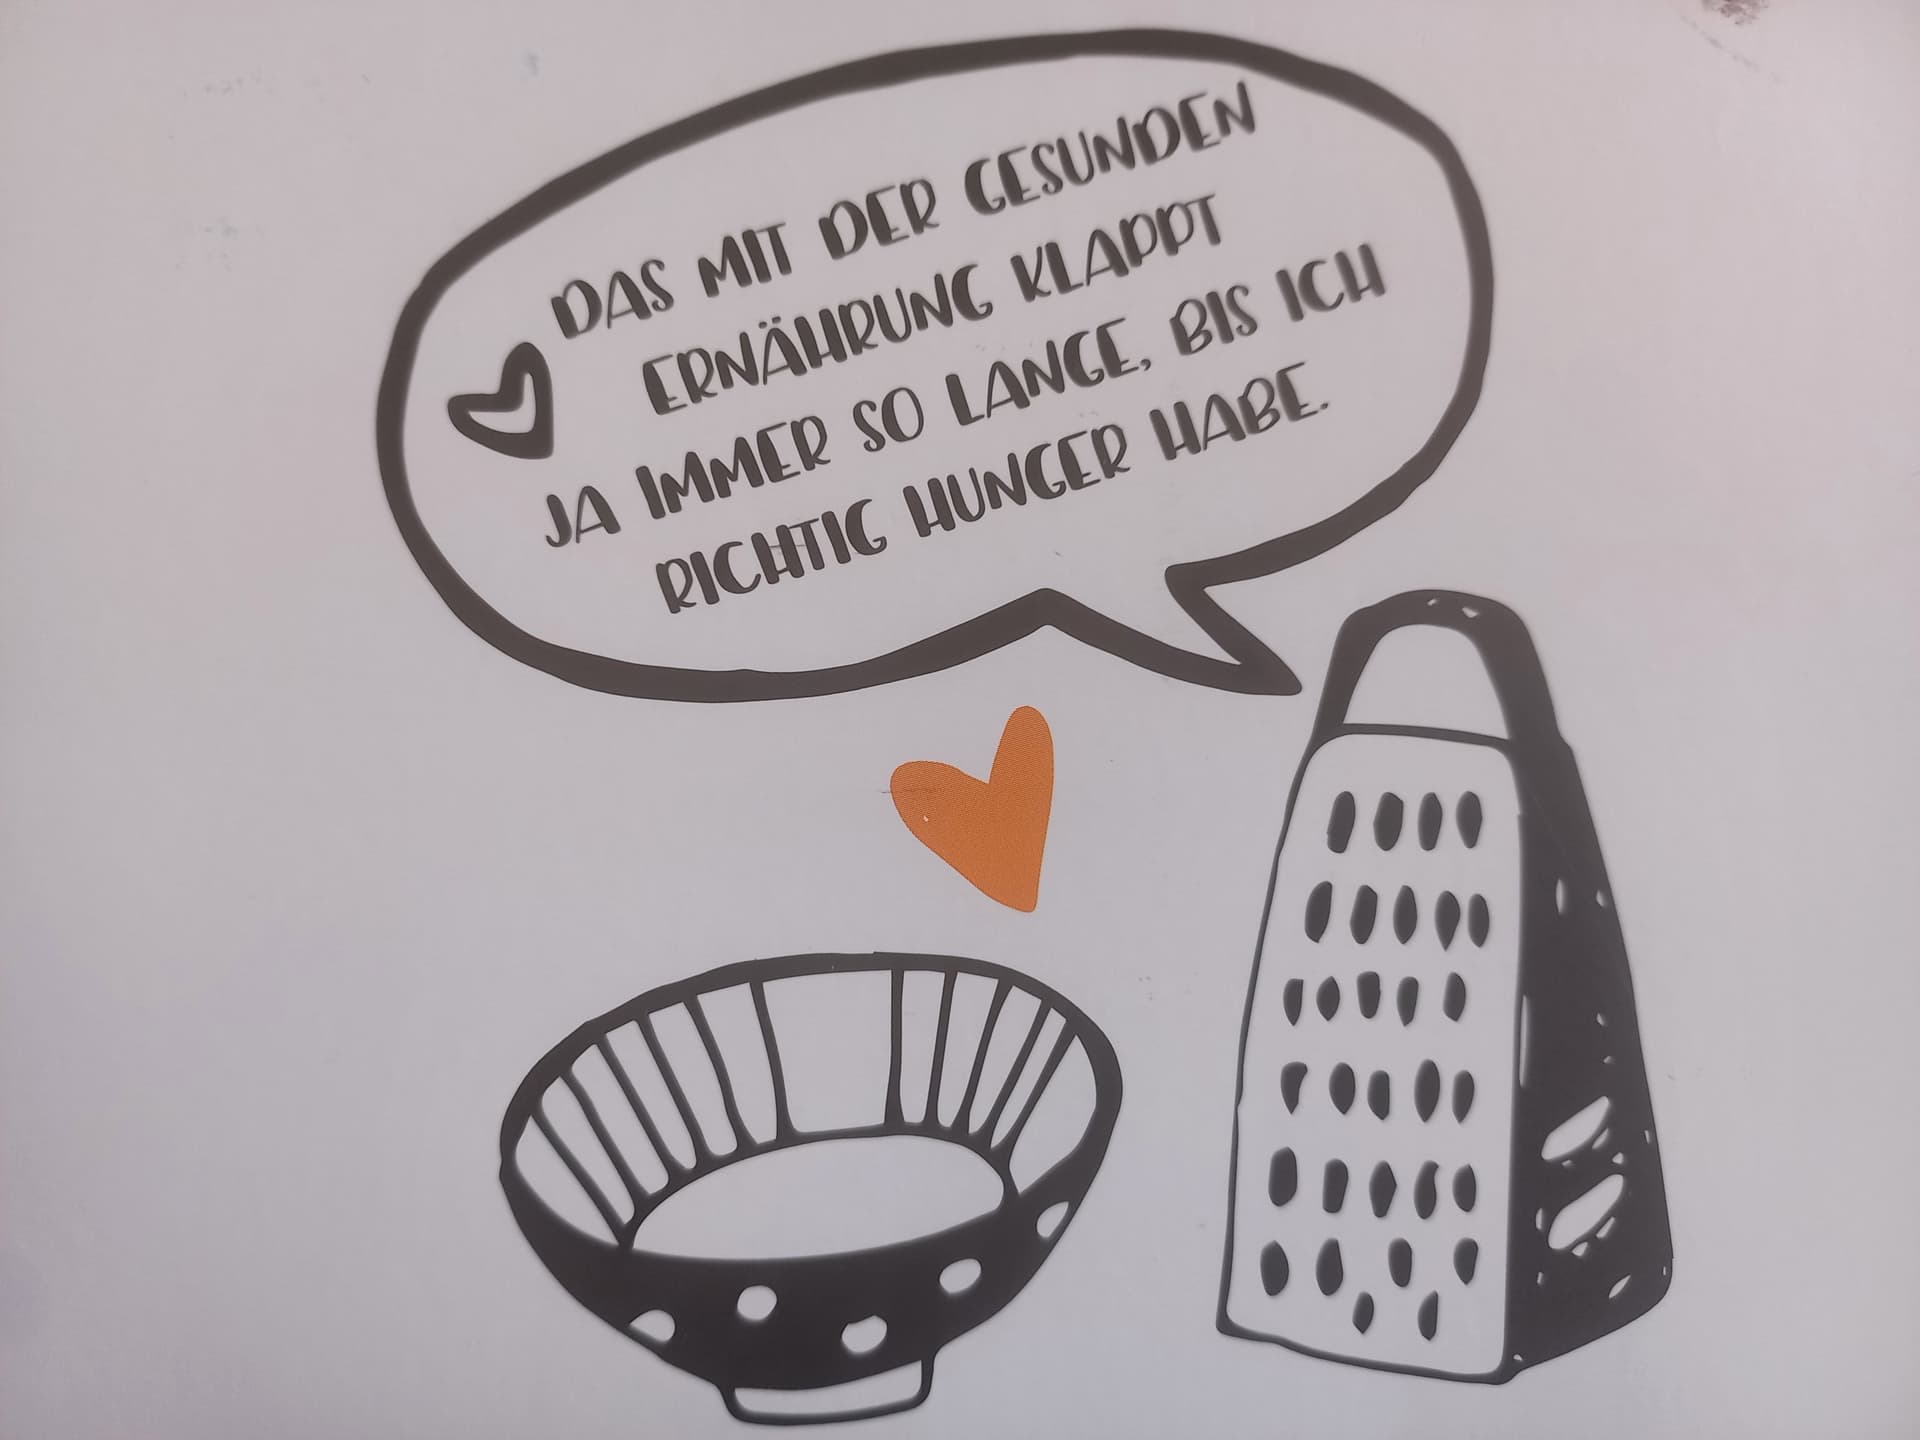 DAS MIT DER GESUNDEN
ERNÄHRUNG KLAPPT
JA IMMER SO LANGE, BIS ICH
RICHTIG HUNGER HABE.